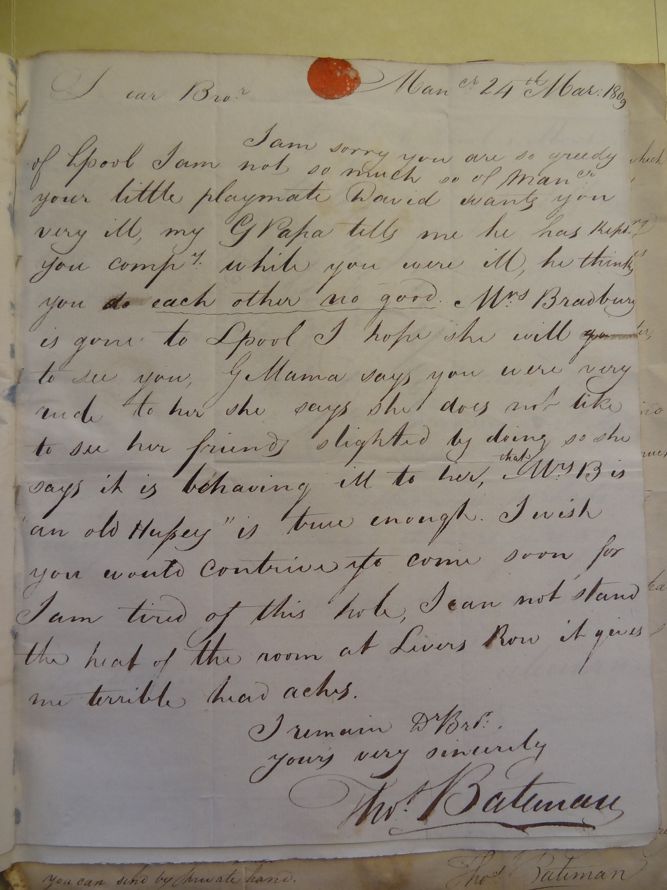 Dear Bror Mancr 24th Mar. 1809
I am sorry you are so greedy
of Lpool I am not so much so of Mancr
your little playmate David wants you
very ill, my G Papa tells me he has kept
you compy. while you were ill, he thinks
you do each other no good. Mrs Bradbury
is gone to Lpool I hope she will
to see you, G Mama says you were very
rude to her she says she does not like
to see her friends slighted by doing so she
says it is behaving ill to her, that Mrs B is
"an old Hussey" is true enough. I wish
you would contrive to come soon for
I am tired of this hole, I can not stand
the heat of the room at Livers Row it gives
me terrible head aches.
I remain Dr Bror.
yours very sincerely
Thos. Bateman
you can send by private hand.
Thos Bateman